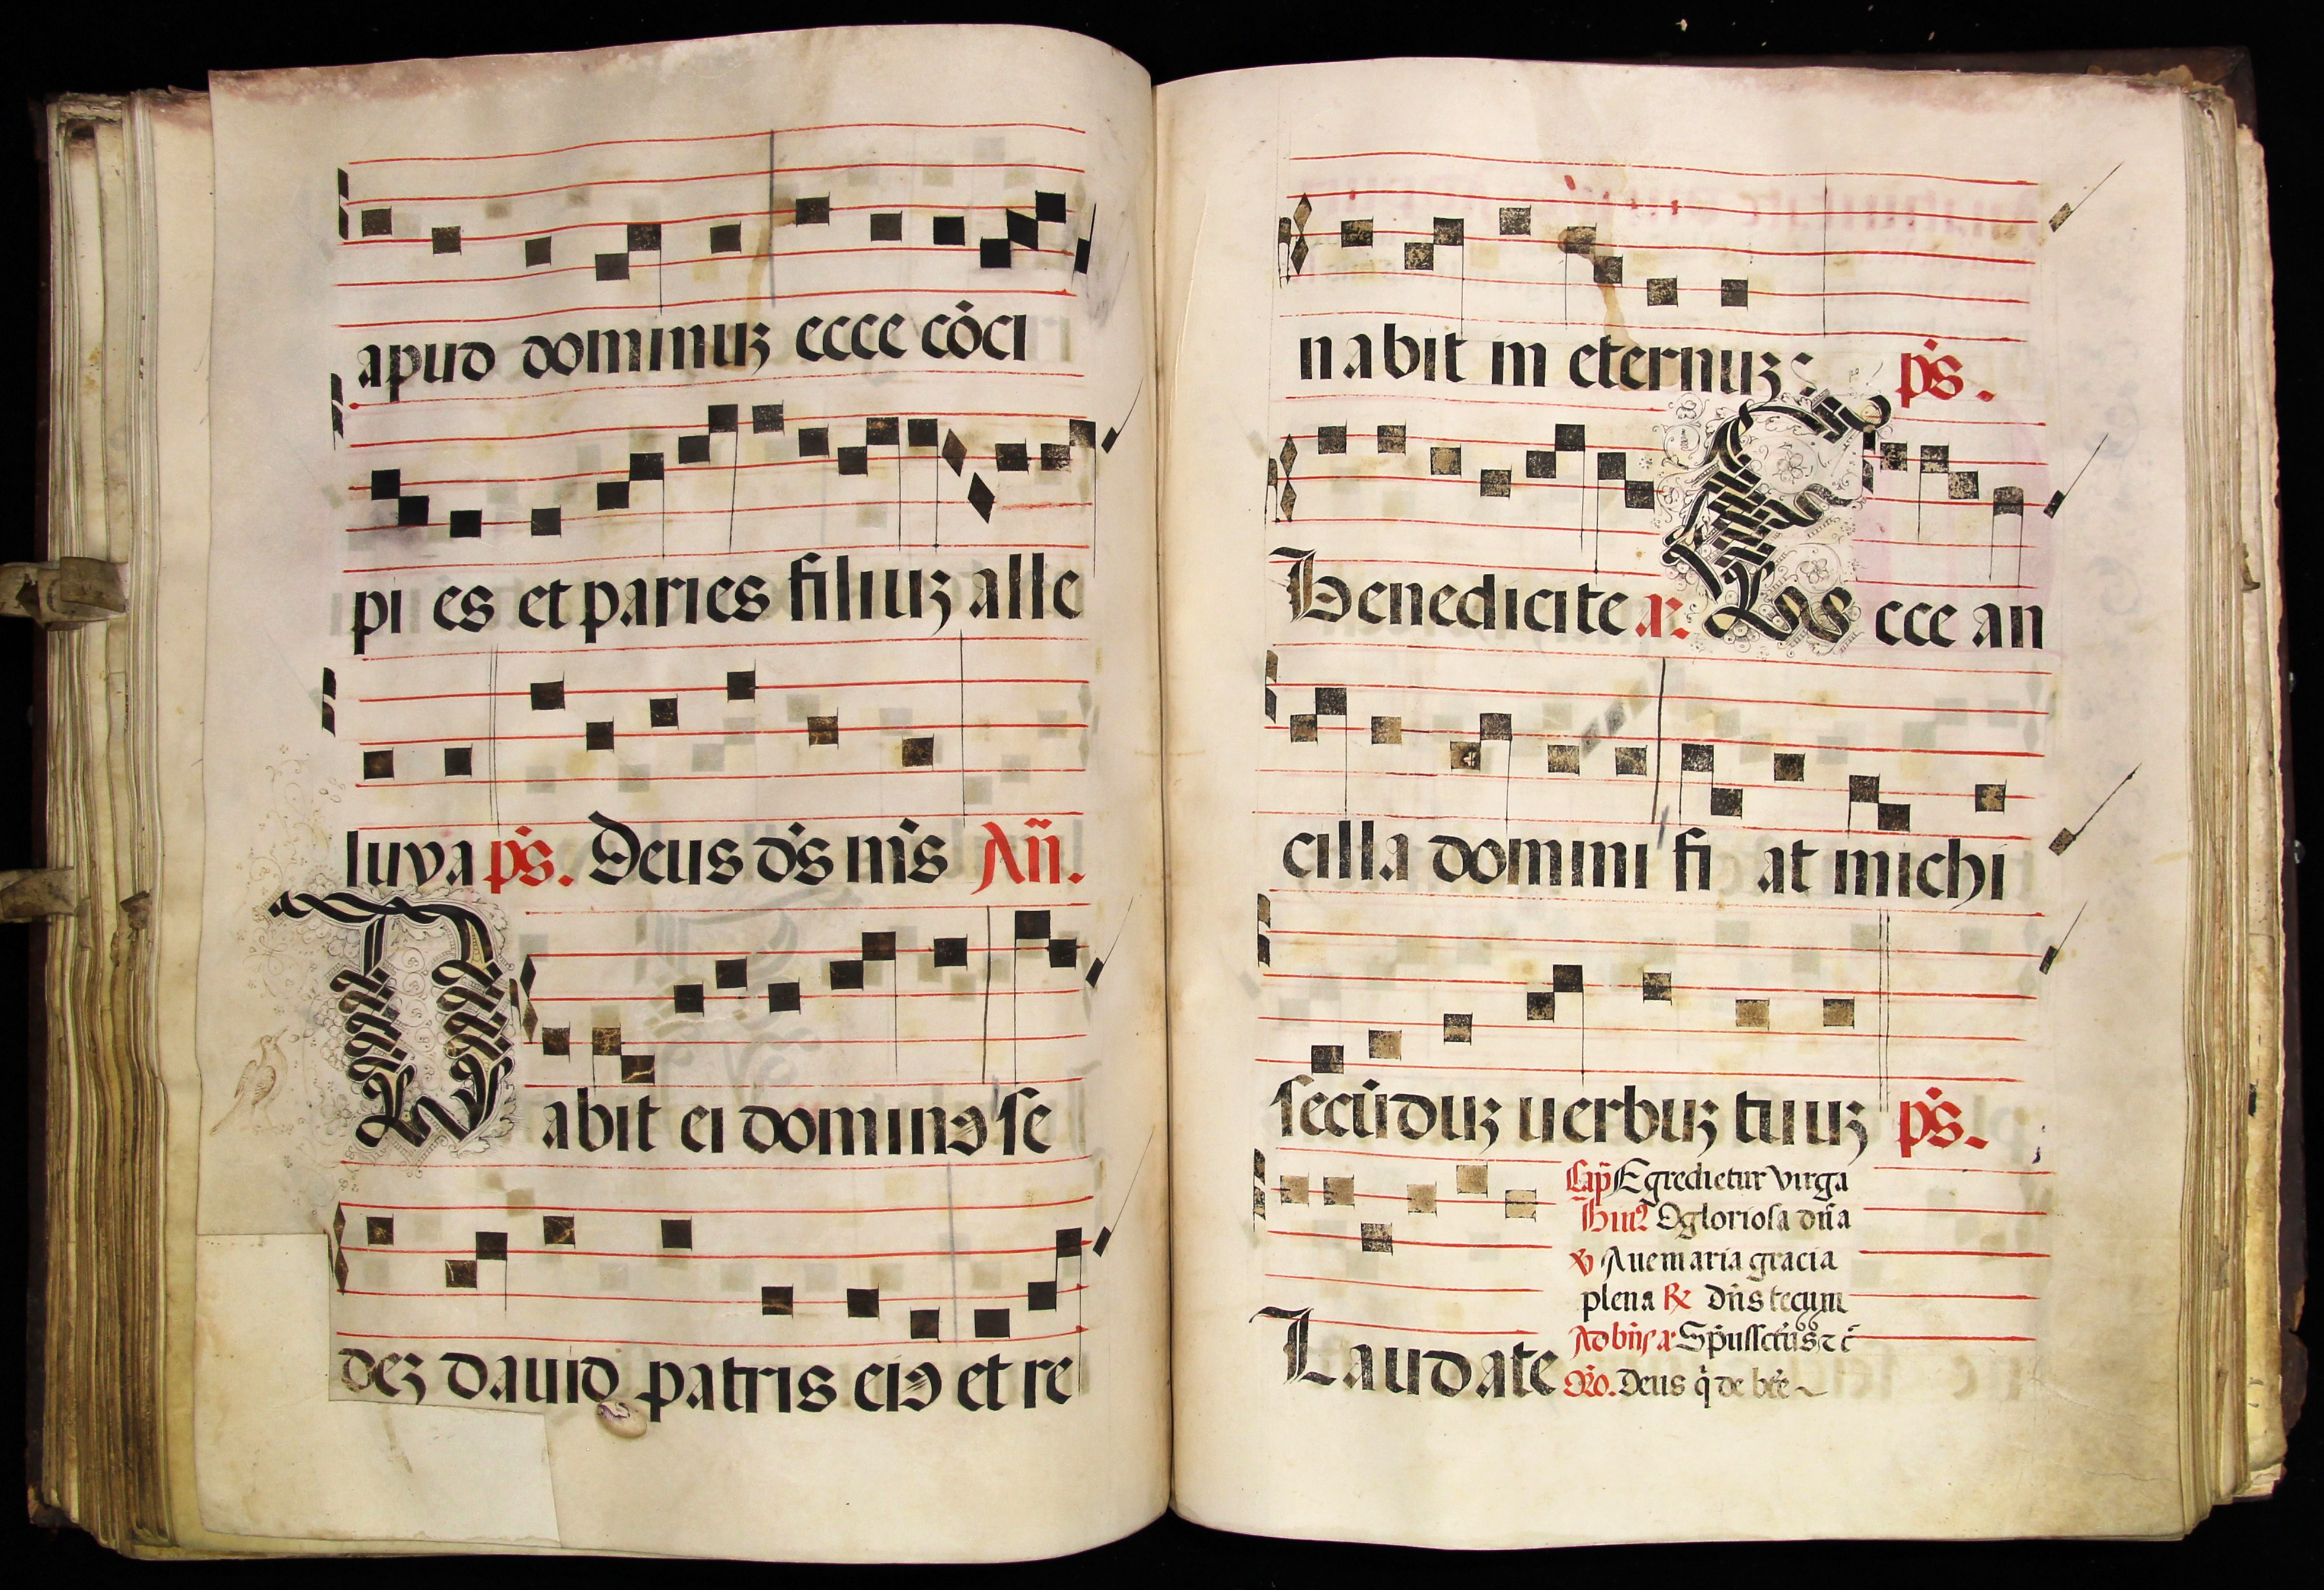 apud dominuʒ ecce cōci
pi es et paries filiuʒ alle
luya p̄s. Deus ds̄ ms̄ An̄.
Dabit ei dominꝰ se
deʒ dauid patris eiꝰ et re
nabit in eternuʒ: p̄s.
Benedicite a. Ecce an
cilla domini fi at michi
secūduʒ uerbuʒ tuuʒ p̄s.
Cap̄ Egredietur virga
O gloriosa dn̄a
℣ Aue maria gracia
plena ℟ Dn̄s tecum
Ad bn̄s a. Sp̄ussctūs ⁊ c̄
Laudate Oŕo. Deus q̄ de btē